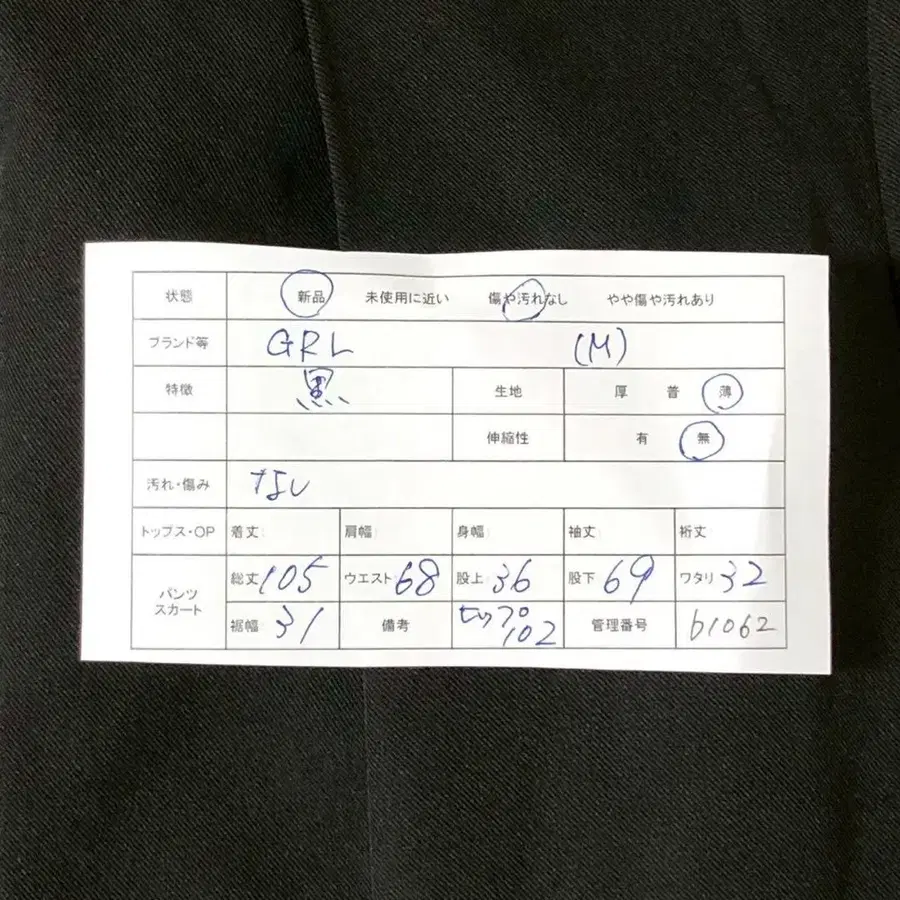 状態 新品 未使用に近い 傷や汚れなし やや傷や汚れあり
ブランド等 GRL (M)
特徴 黒 生地 厚 普 薄
伸縮性 有 無
汚れ・傷み なし
トップス・OP 着丈: 肩幅: 身幅: 袖丈: 裄丈
パンツ スカート
総丈 105 ウエスト 68 股上: 36 股下: 69 ワタリ: 32
裾幅 31 備考 ヒップ 102 管理番号 b1062